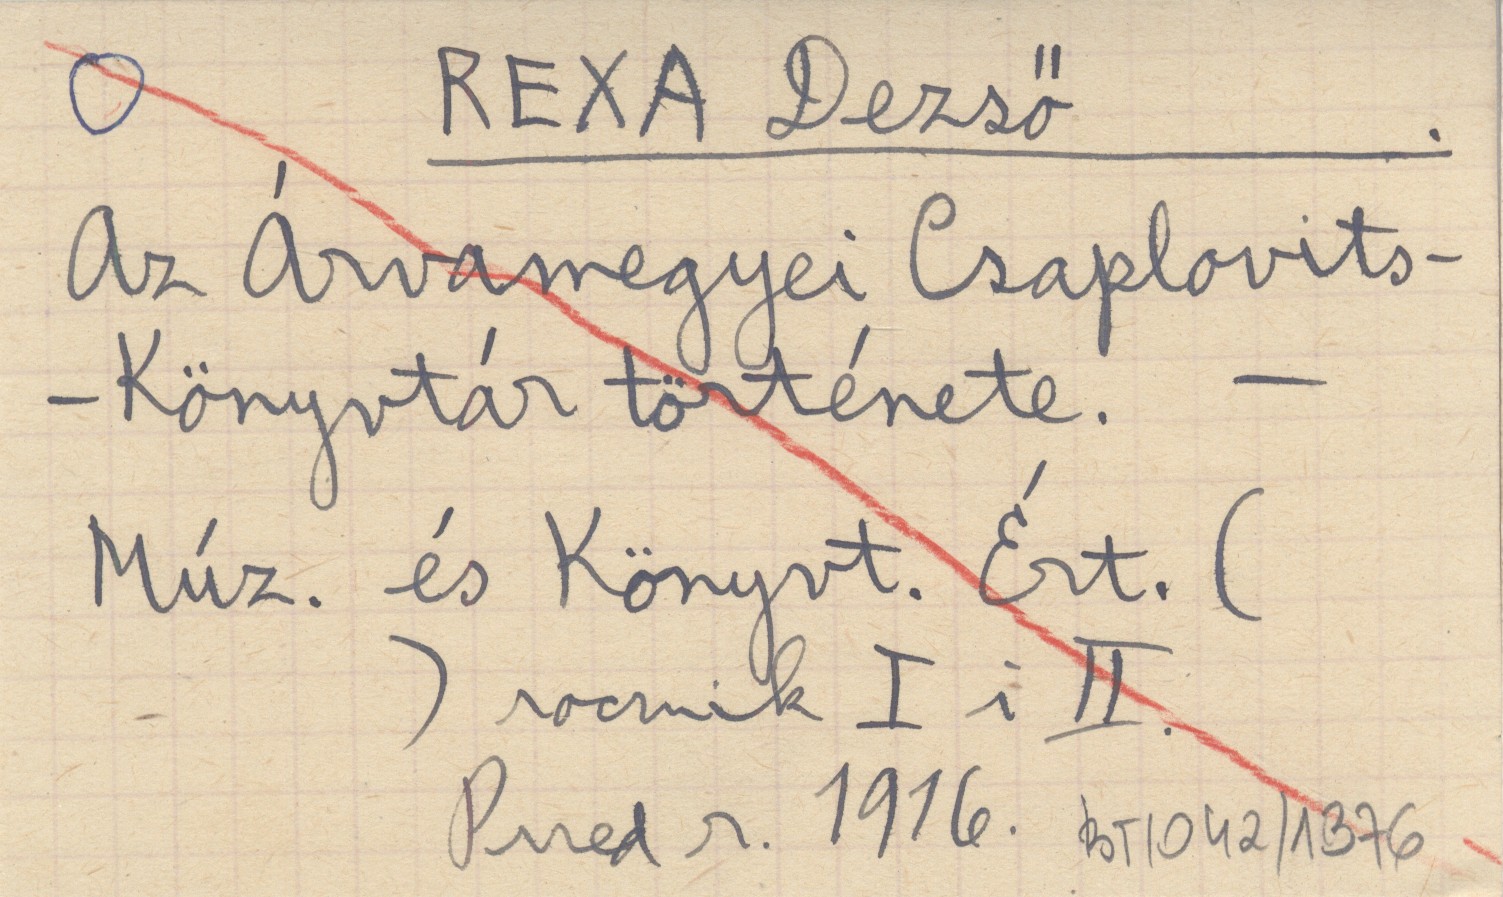 REXA Dezső .
Az Árvamegyei Csaplovits-
-Könyvtár története. —
Múz. és Könyvt. Ért. (
) rocznik I i II.
Przed r. 1916.
BT/042/1376